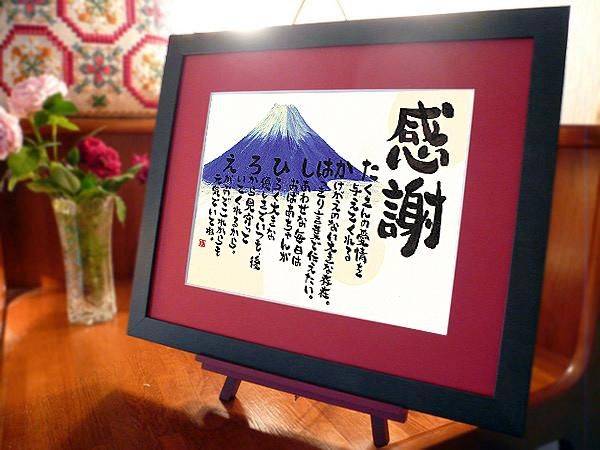 感謝
たくさんの愛情を
与えてくれる
かけがえのない大きな存在。
はっきり言葉で伝えたい。
しあわせな毎日は
おばあちゃんが
ひろく大きな
優しさでいつも、後
ろから見守って
いてくれるから。
えがおでこれからも
元気でいてね。